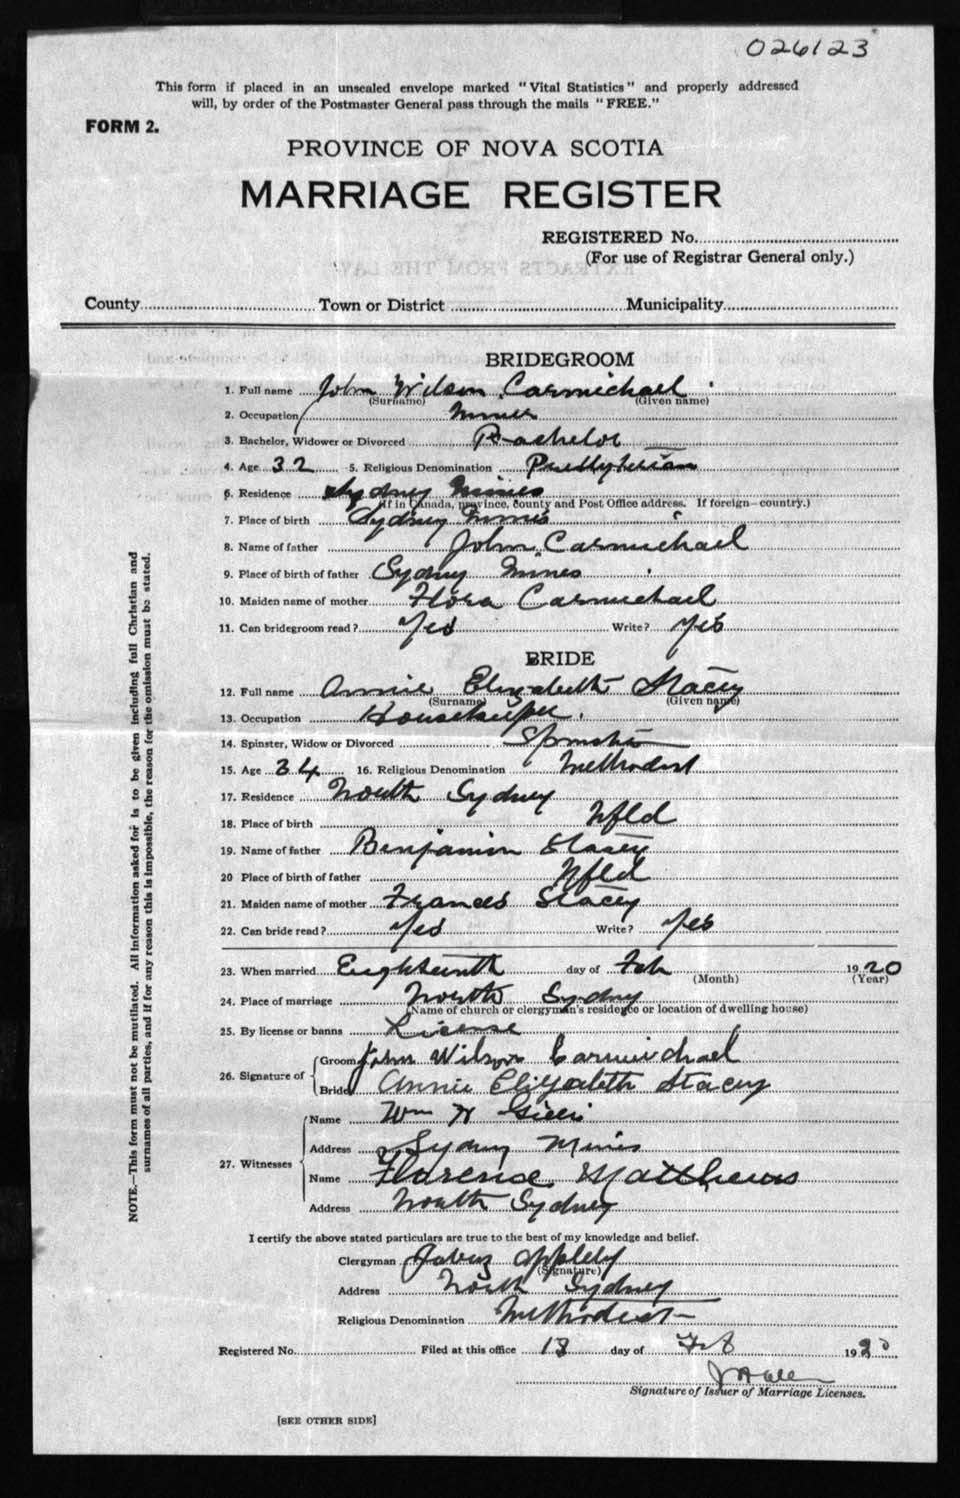 026123
This form if placed in an unsealed envelope marked "Vital Statistics" and properly addressed
will, by order of the Postmaster General pass through the mails "FREE."
FORM 2.
PROVINCE OF NOVA SCOTIA
MARRIAGE REGISTER
REGISTERED No.
(For use of Registrar General only.)
County Town or District Municipality
BRIDEGROOM
1. Full name John Wilson Carmichael
(Surname) (Given name)
2. Occupation Miner
3. Bachelor, Widower or Divorced Bachelor
4. Age 32 5. Religious Denomination Presbyterian
6. Residence Sydney Mines
(If in Canada, province, county and Post Office address. If foreign—country.)
7. Place of birth Sydney Mines
8. Name of father John Carmichael
9. Place of birth of father Sydney Mines
10. Maiden name of mother Flora Carmichael
11. Can bridegroom read? Yes Write? Yes
BRIDE
12. Full name Annie Elizabeth Stacey
(Surname) (Given name)
13. Occupation Housekeeper.
14. Spinster, Widow or Divorced Spinster
15. Age 34 16. Religious Denomination Methodist
17. Residence North Sydney
18. Place of birth Nfld
19. Name of father Benjamin Stacey
20 Place of birth of father Nfld
21. Maiden name of mother Frances Stacey
22. Can bride read? Yes Write? Yes
23. When married Eighteenth day of Feb 1920
(Month) (Year)
24. Place of marriage North Sydney
(Name of church or clergyman's residence or location of dwelling house)
25. By license or banns License
26. Signature of Groom John Wilson Carmichael
Bride Annie Elizabeth Stacey
27. Witnesses
Name Wm
Address Sydney Mines
Name Florence Matthews
Address North Sydney
I certify the above stated particulars are true to the best of my knowledge and belief.
Clergyman Jabez Appleby
(Signature)
Address North Sydney
Religious Denomination Methodist
Registered No. Filed at this office 18 day of Feb 1920
Signature of Issuer of Marriage Licenses.
[SEE OTHER SIDE]
NOTE.—This form must not be mutilated. All information asked for is to be given including full Christian and
surnames of all parties, and if for any reason this is impossible, the reason for the omission must be stated.